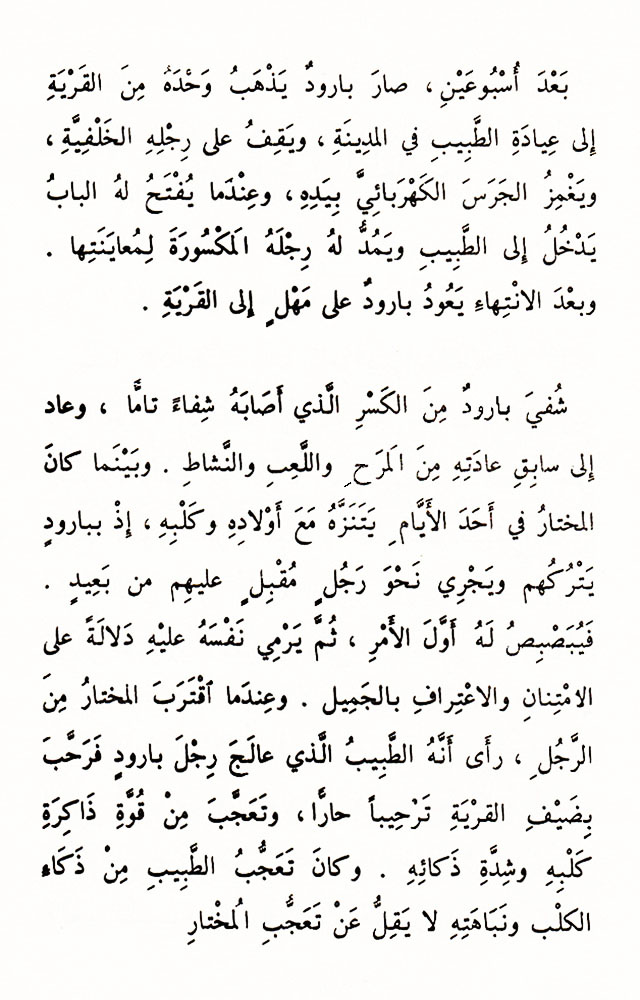 بَعْدَ أُسْبُوعَيْنِ، صارَ بارودٌ يَذْهَبُ وَحْدَهُ مِنَ القَرْيَةِ
إلى عِيادَةِ الطَّبِيبِ في المدِينَةِ، ويَقِفُ على رِجْلِهِ الخَلْفِيَّةِ،
ويَغْمِزُ الجَرَسَ الكَهْرَبائِيَّ بِيَدِهِ، وعِنْدَما يُفْتَحُ لهُ البابُ
يَدْخُلُ إلى الطَّبِيبِ ويَمُدُّ لهُ رِجْلَهُ المَكْسُورَةَ لِمُعايَنَتِها .
وبعْدَ الانْتِهاءِ يَعُودُ بارودٌ على مَهْلٍ إلى القَرْيَةِ .
شُفيَ بارودٌ مِنَ الكَسْرِ الَّذي أَصَابَهُ شِفاءً تامًّا ، وعاد
إلى سابِقِ عادَتِهِ مِنَ المَرَحِ واللَّعِبِ والنَّشاطِ . وبَيْنَما كانَ
المختارُ في أَحَدَ الأَيَّامِ يَتَنَزَّهُ مَعَ أَوْلادِهِ وكَلْبِهِ، إذْ ببارودٍ
يَتْرُكُهم ويَجْرِي نَحْوَ رَجُلٍ مُقْبِلٍ عليهِم من بَعِيدٍ .
فَيُبَصْبِصُ لَهُ أَوَّلَ الأَمْرِ ، ثُمَّ يَرْمِي نَفْسَهُ عليْهِ دَلالَةً على
الامْتِنانِ والاعْتِرافِ بالجَمِيل . وعِندَما ٱقْتَرَبَ المختارُ مِنَ
الرَّجُلِ ، رأَى أَنَّهُ الطَّبِيبُ الَّذي عالَجَ رِجْلَ بارودٍ فَرَحَّبَ
بِضَيْفِ القرْيَةِ تَرْحِيباً حارًّا، وتَعَجَّبَ مِنْ قُوَّةِ ذَاكِرَةِ
كَلْبِهِ وشِدَّةِ ذَكائِهِ . وكانَ تَعَجُّبُ الطَّبِيبِ مِنْ ذَكَاءِ
الكلْب ونَبَاهَتِهِ لا يَقِلُّ عَنْ تَعَجُّبِ المُخْتارِ